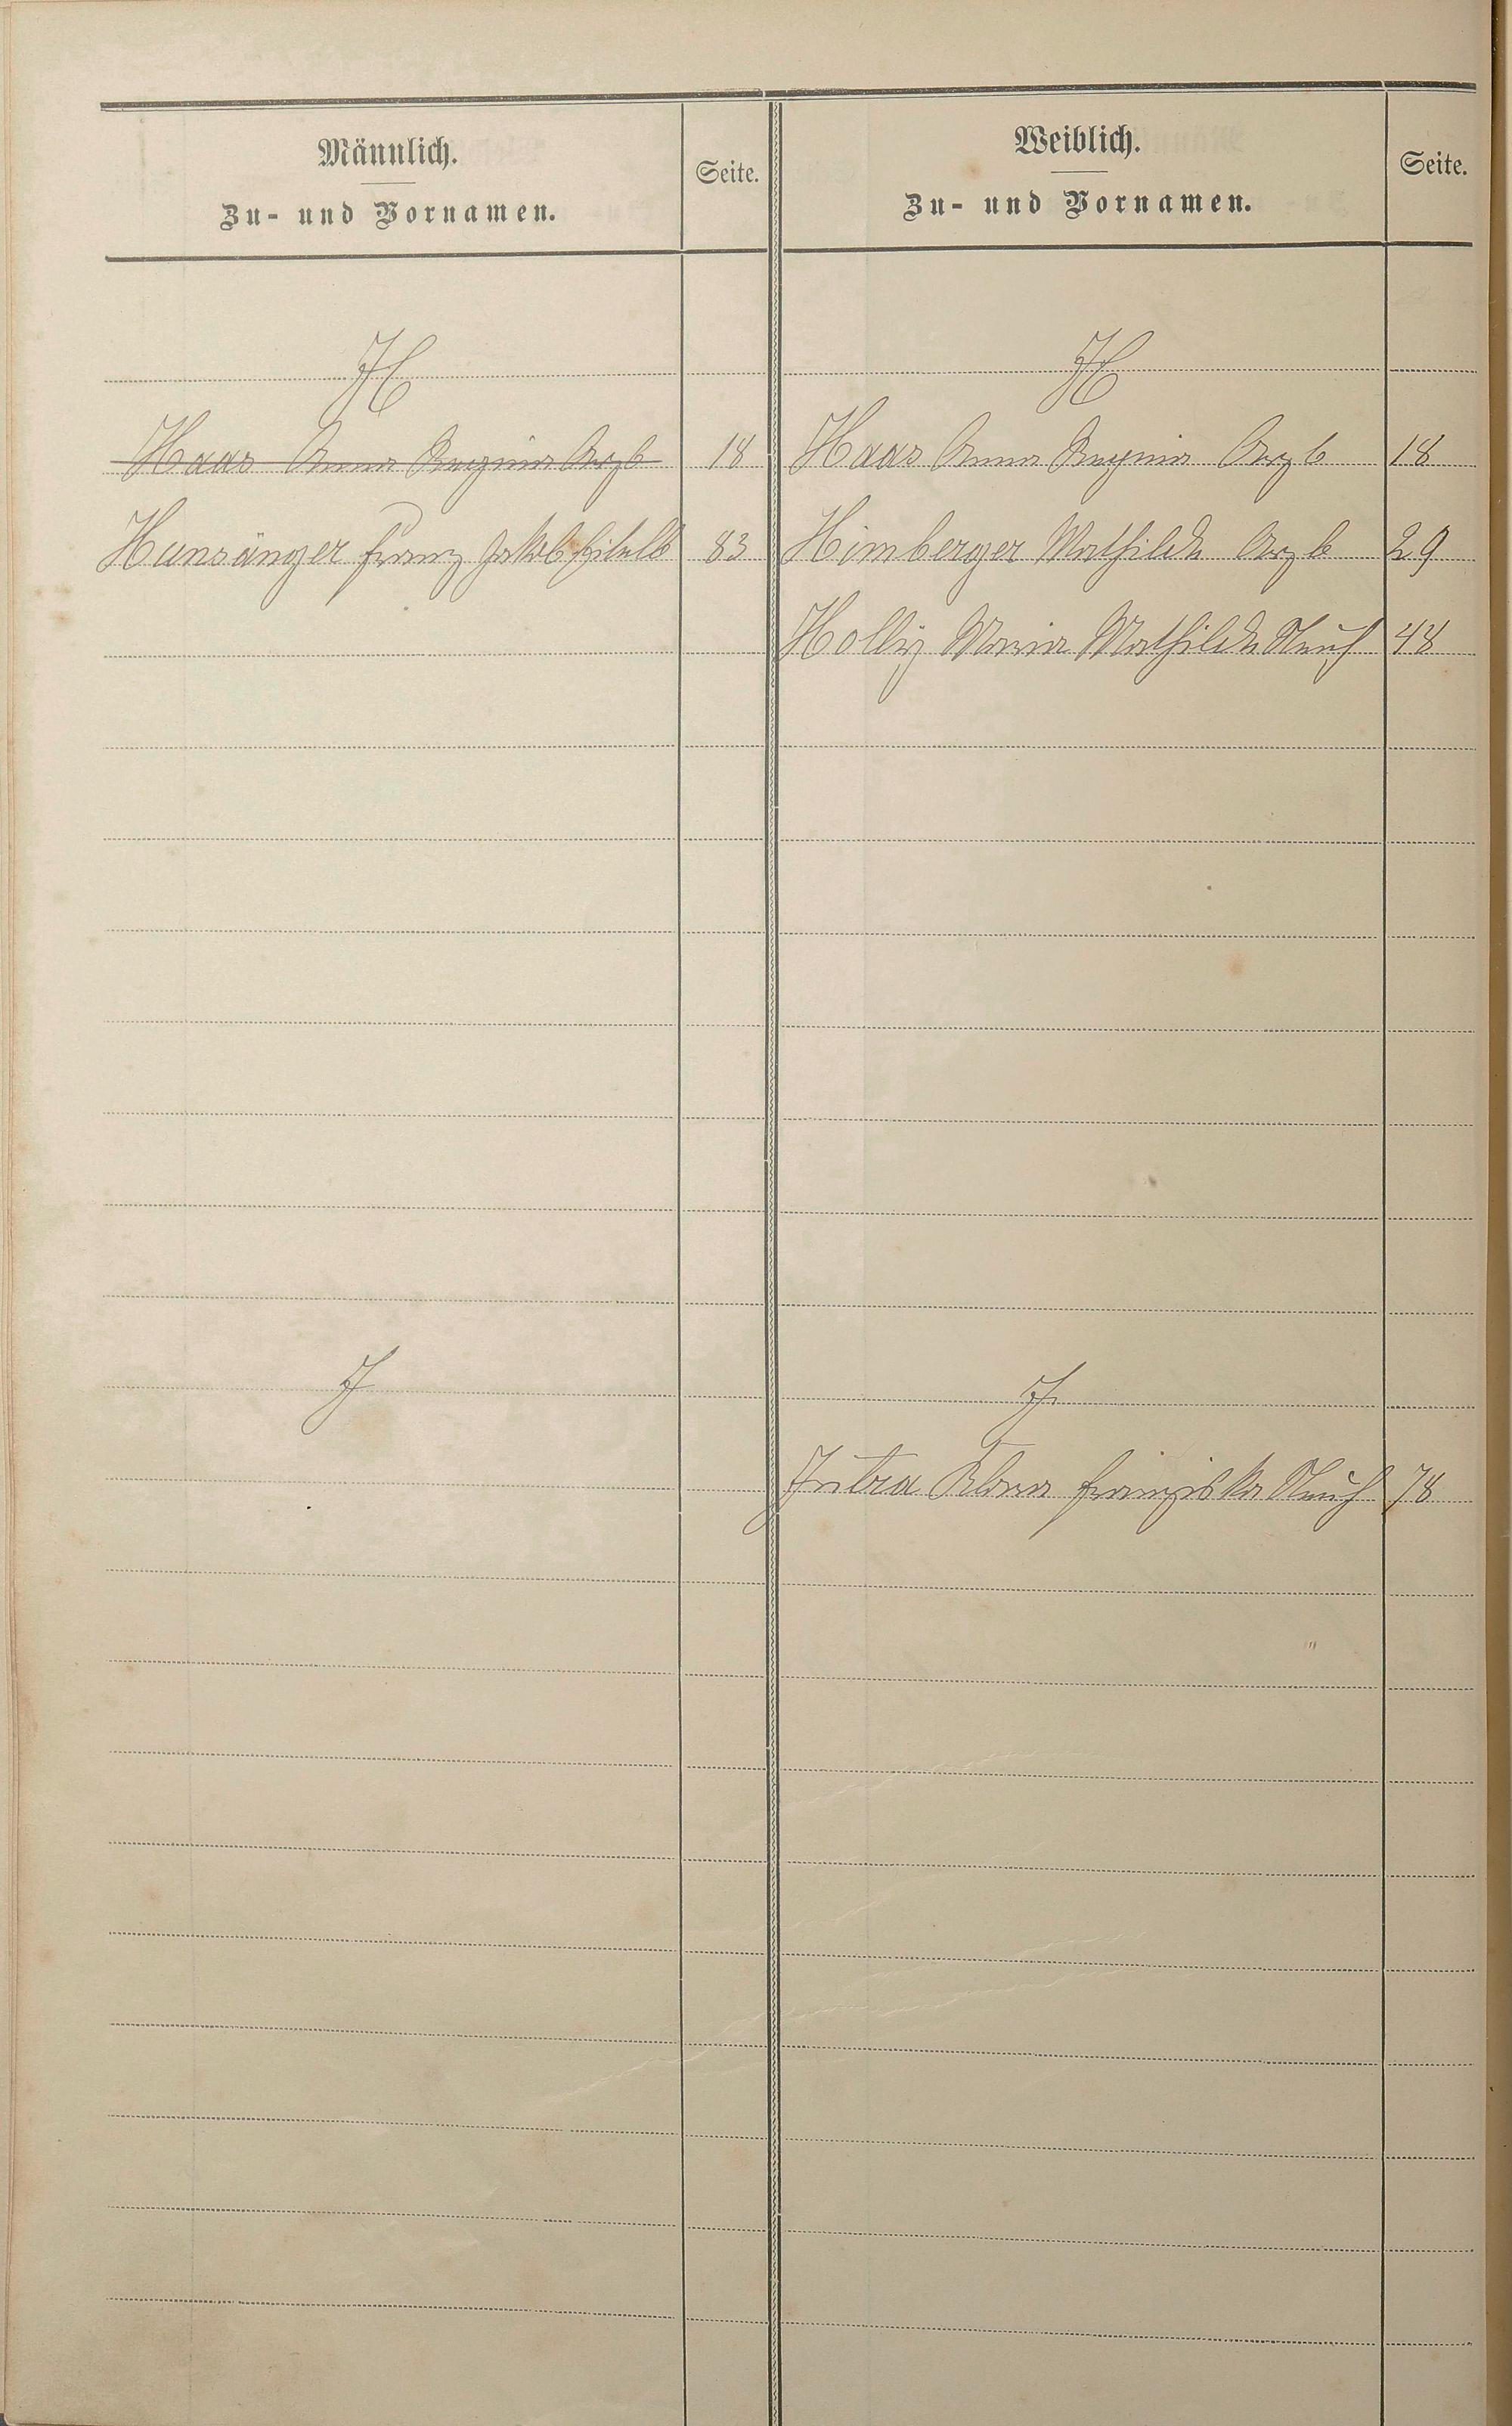 Männlich.
Zu- und Vornamen.
Seite.
Weiblich.
Zu- und Vornamen.
Seite.
H
H
Haas Anna Regina Arzb 18
Haas Anna Regina Arzb 18
Hunsänger Franz Jakob 83
Himberger Mathilde Arzb 29
Holly Maria Mathilde Neuh 48
J
J
Jutra Klara Franziska Neuh 78